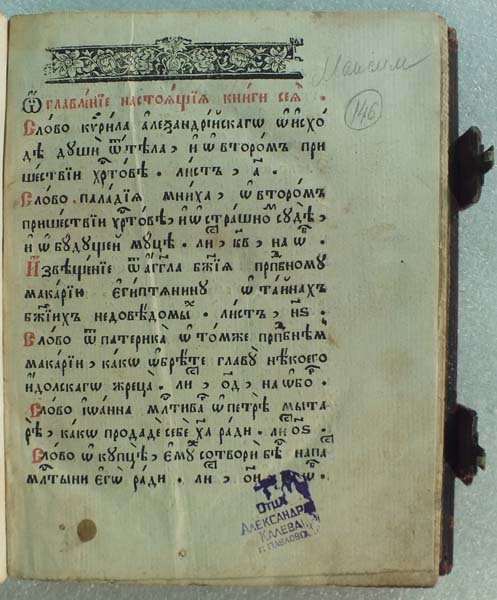 Максим
146
Ѡглавле́нїе настоѧ́щїѧ кни́ги сеѧ̀ .
Сло́во кѷри́ла а҆леѯандрі́йскагѡ ѡ҆ и҆схо́
дѣ дꙋшѝ ѿ тѣ́ла , и҆ ѡ҆ второ́мъ при
ше́ствїи хрⷭ҇то́вѣ . ли́стъ , а҃ .
Сло́во палла́дїѧ мни́ха , ѡ҆ второ́мъ
прише́ствїи хрⷭ҇то́вѣ , и҆ ѡ҆ стра́шно́мъ сꙋдѣ̀ ,
и҆ ѡ҆ бꙋ́дꙋщей мꙋ́цѣ . ли , на ѡб .
И҆звѣще́нїе ѿ а҆́гг҃ла бж҃їѧ прпⷣбномꙋ
мака́рїю є҆гѵ́птѧнинꙋ ѡ҆ та́йнахъ
бж҃їихъ недовѣ́домы . ли́стъ , н҃ѕ .
Сло́во ѿ патерика̀ ѡ҆ то́мже прпⷣбнѣ́мъ
мака́рїи , ка́кѡ ѡ҆брѣ́те главꙋ̀ нѣ́коего
и҆́дольскагѡ жреца̀ . ли , о҃д , на ѡбо .
Сло́во і҆ѡа́нна млⷭ҇тиваⷢ ѡ҆ петрѣ̀ мыта
рѣ̀ , ка́кѡ продадѐ себѐ хрⷭ҇та̀ ра́ди . ли о҃ѕ .
Сло́во ѡ҆ кꙋпцѣ̀ , є҆мꙋ́же сотворѝ бѣ напа
млⷭ҇тыни є҆гѡ̀ ра́ди . ли , о҃и
Отца
Александра
Калева
г. Павлово